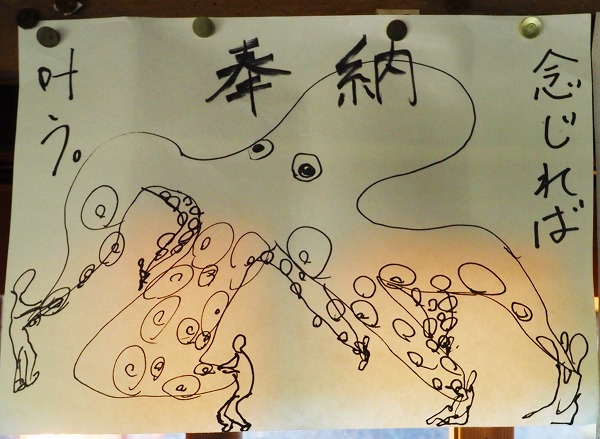 奉納
念じれば
叶う。